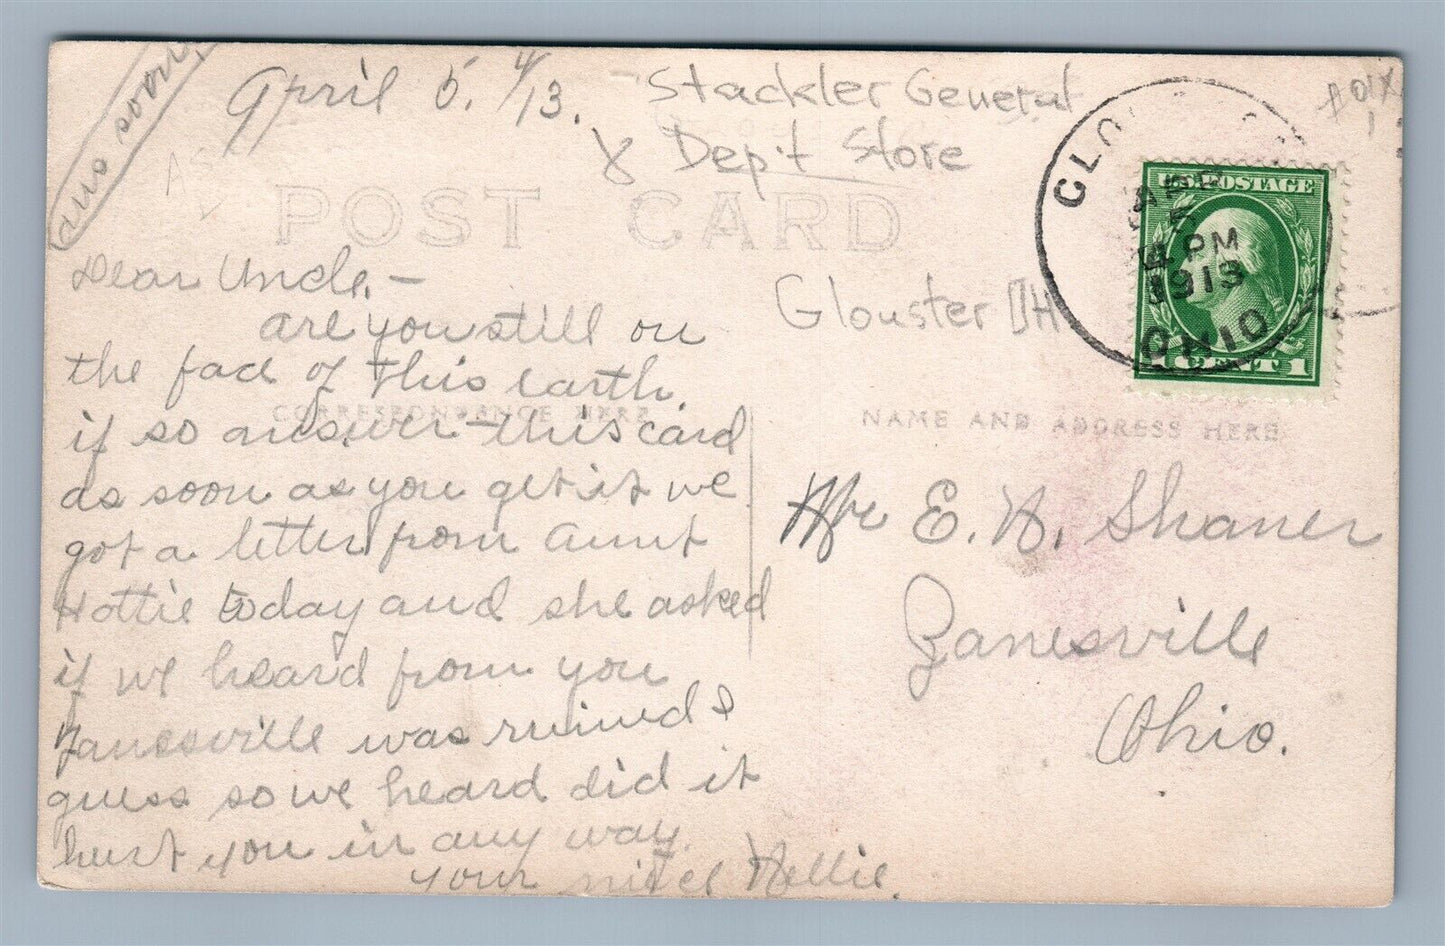 ans soon.
April 5. 4/13.
- Stackler General
& Dep't Store
POST CARD
GLO
APR
5
4 PM
1913
OHIO
U.S. POSTAGE
1 CENT 1
Dear Uncle. -
Glouster OH
are you still on
the face of this earth.
if so answer this card
as soon as you get it we
got a letter from Aunt
Hottie today and she asked
if we heard from you
Zanesville was ruined I
guess so we heard did it
hurt you in any way.
your niece Nellie.
CORRESPONDENCE HERE
NAME AND ADDRESS HERE
Mr E. N. Shaner
Zanesville
Ohio.